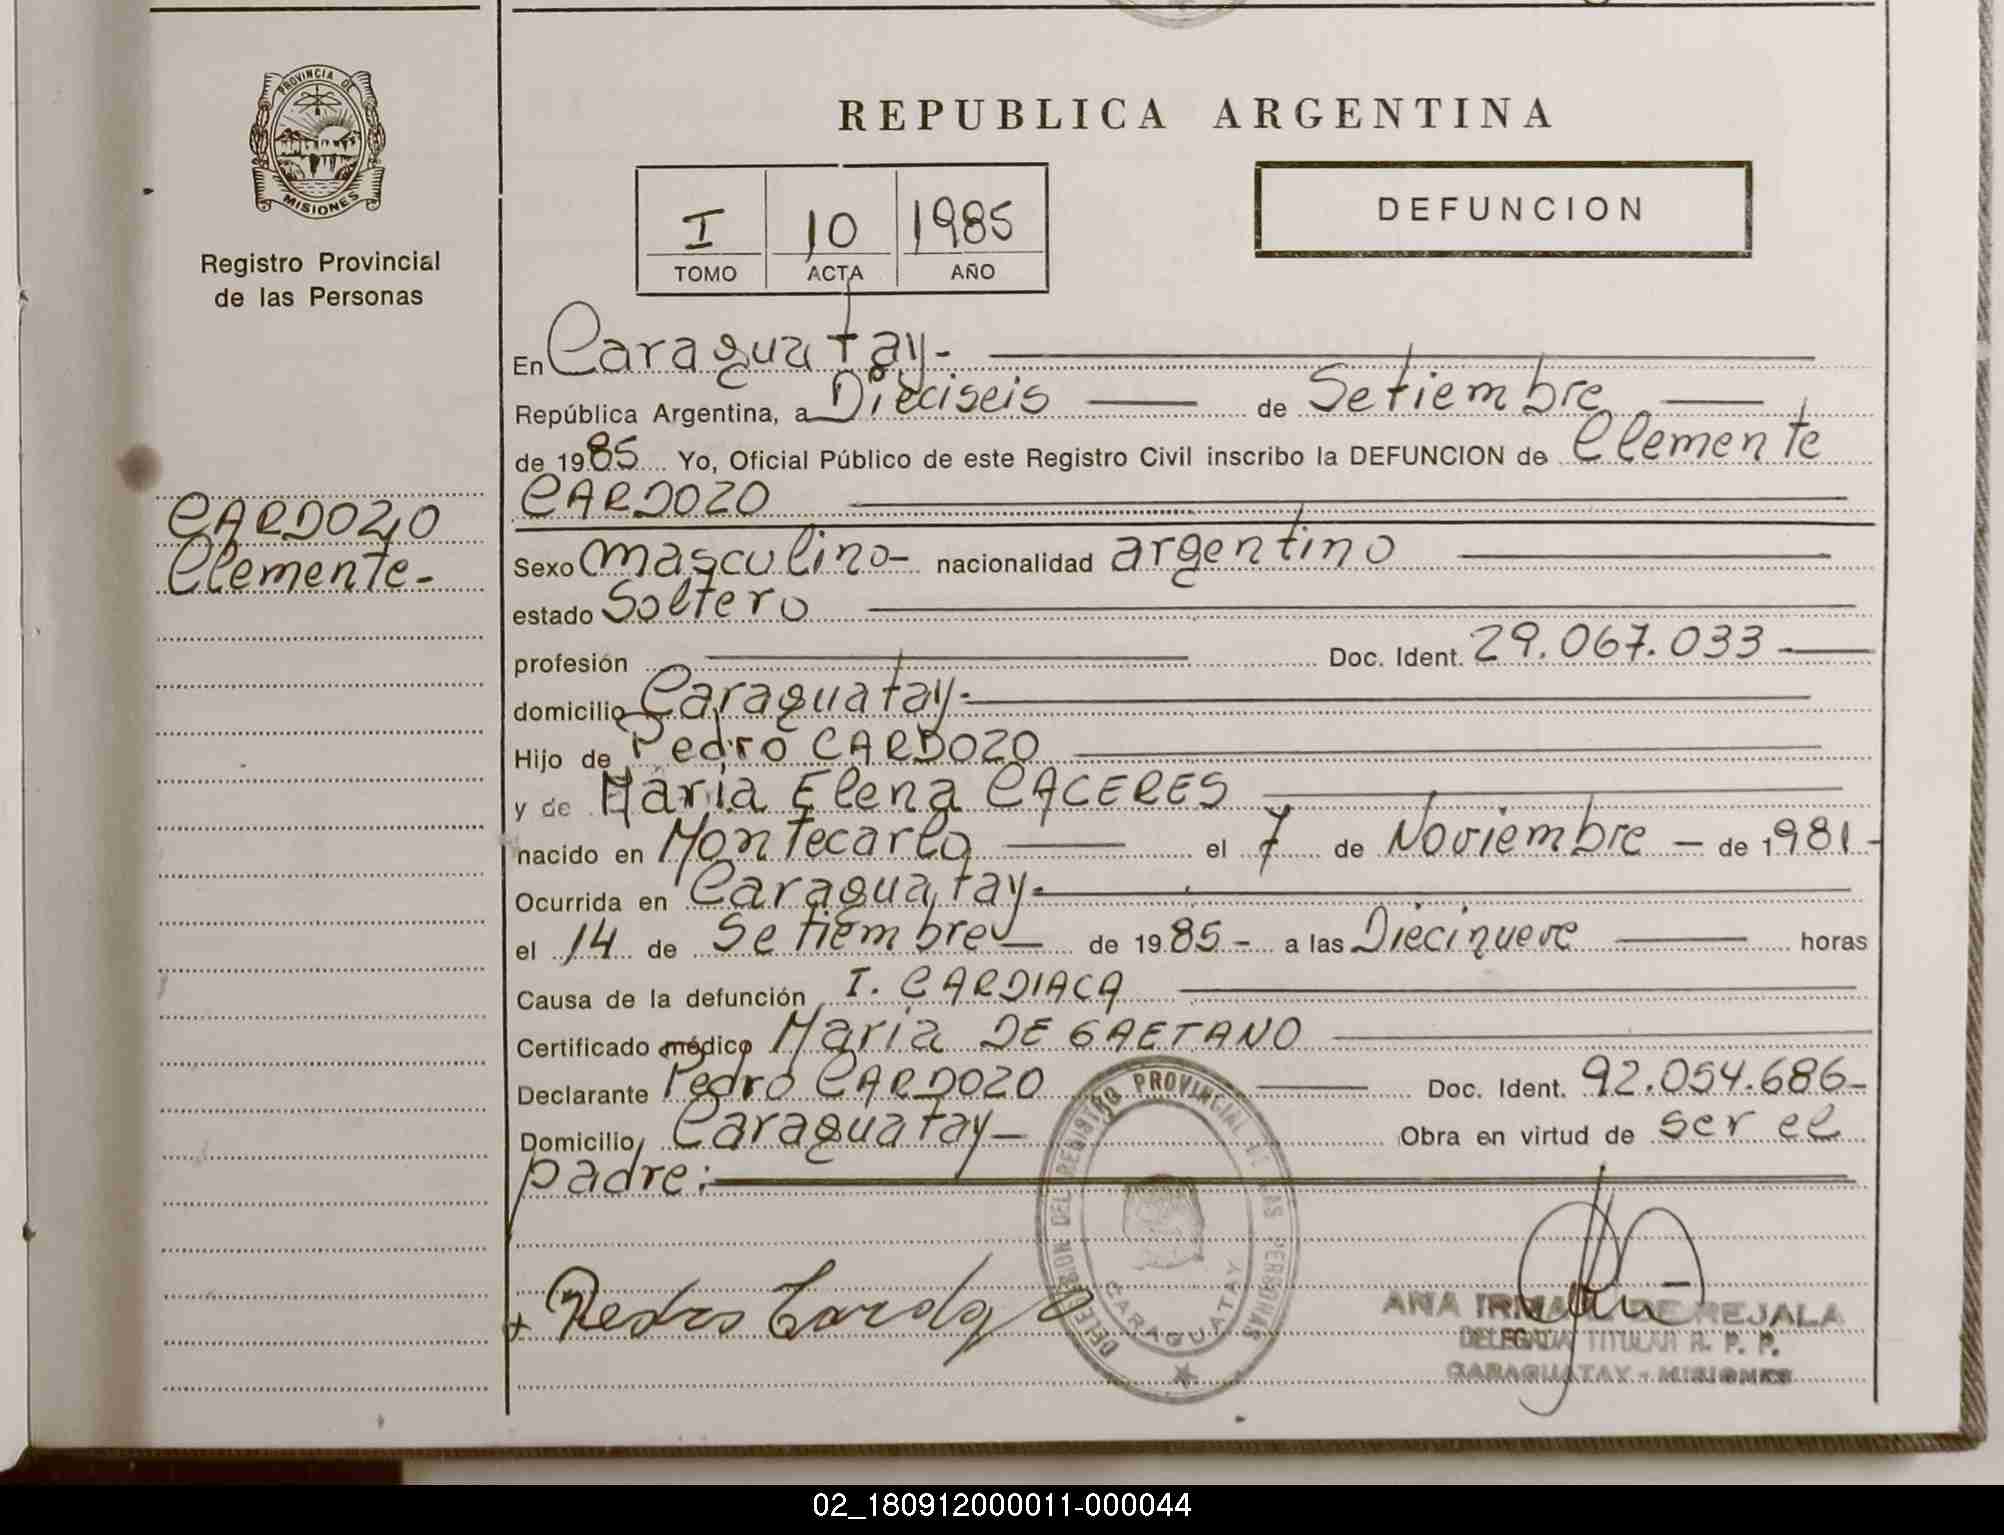 PROVINCIA DE
MISIONES
Registro Provincial
de las Personas
CARDOZO
Clemente-
REPUBLICA ARGENTINA
I 10 1985
TOMO ACTA AÑO
DEFUNCION
En Caraguatay-
República Argentina, a Dieciseis de Setiembre
de 1985 Yo, Oficial Público de este Registro Civil inscribo la DEFUNCION de Clemente
CARDOZO
Sexo masculino- nacionalidad argentino
estado Soltero
profesión Doc. Ident. 29.067.033
domicilio Caraguatay-
Hijo de Pedro CARDOZO
y de María Elena CACERES
nacido en Montecarlo el 7 de Noviembre - de 1981-
Ocurrida en Caraguatay-
el 14 de Setiembre de 1985- a las Diecinueve horas
Causa de la defunción I. CARDIACA
Certificado médico María DE GAETANO
Declarante Pedro CARDOZO Doc. Ident. 92.054.686-
Domicilio Caraguatay- Obra en virtud de ser el
padre:
DELEGACION DEL REGISTRO PROVINCIAL DE LAS PERSONAS
CARAGUATAY
Pedro Cardozo
ANA IRMA DE REJALA
DELEGADA TITULAR R. P. P.
CARAGUATAY - MISIONES
02_180912000011-000044